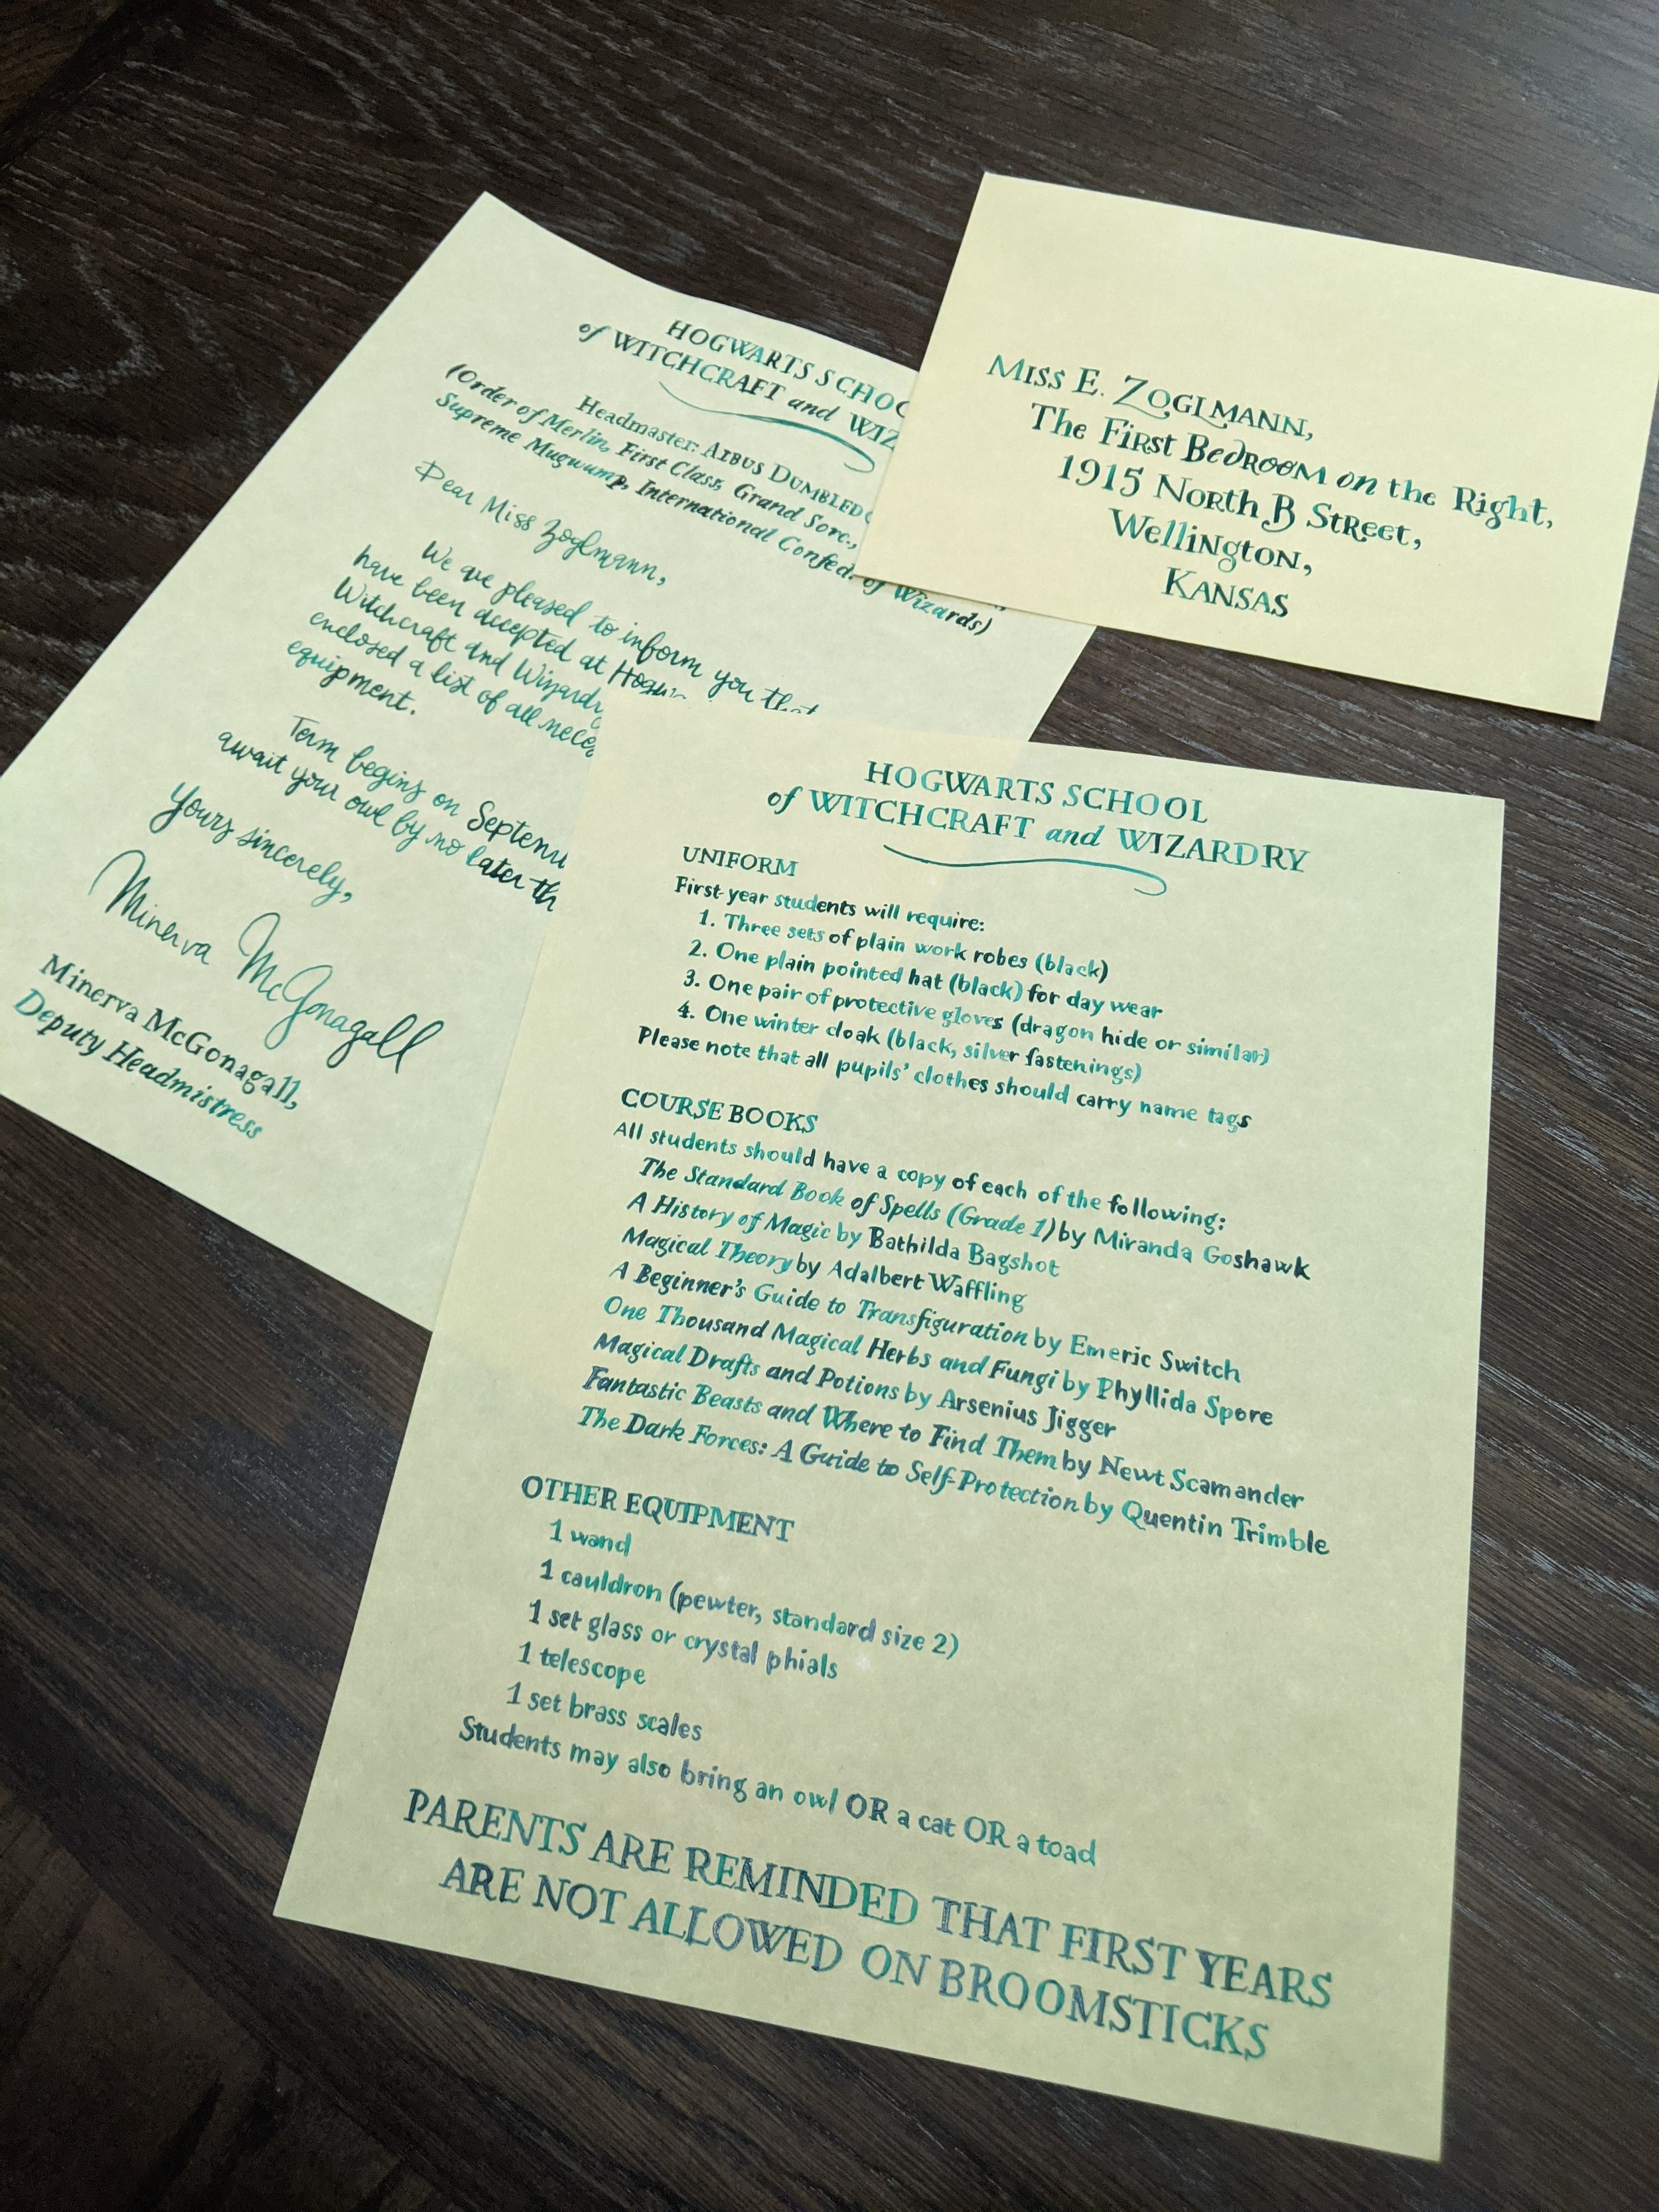 HOGWARTS SCHOO
of WITCHCRAFT and WIZ
Headmaster: ALBUS DUMBLEDO
(Order of Merlin, First Class, Grand Sorc.,
Supreme Mugwump, International Confed. of Wizards)
Dear Miss Zoglmann,
We are pleased to inform you that
have been accepted at Hogw
Witchcraft and Wizardry
enclosed a list of all nece
equipment.
Term begins on Septem
await your owl by no later th
Yours sincerely,
Minerva McGonagall
Minerva McGonagall,
Deputy Headmistress
MISS E. ZOGLMANN,
The First Bedroom on the Right,
1915 North B Street,
Wellington,
KANSAS
HOGWARTS SCHOOL
of WITCHCRAFT and WIZARDRY
UNIFORM
First-year students will require:
1. Three sets of plain work robes (black)
2. One plain pointed hat (black) for day wear
3. One pair of protective gloves (dragon hide or similar)
4. One winter cloak (black, silver fastenings)
Please note that all pupils' clothes should carry name tags
COURSE BOOKS
All students should have a copy of each of the following:
The Standard Book of Spells (Grade 1) by Miranda Goshawk
A History of Magic by Bathilda Bagshot
Magical Theory by Adalbert Waffling
A Beginner's Guide to Transfiguration by Emeric Switch
One Thousand Magical Herbs and Fungi by Phyllida Spore
Magical Drafts and Potions by Arsenius Jigger
Fantastic Beasts and Where to Find Them by Newt Scamander
The Dark Forces: A Guide to Self-Protection by Quentin Trimble
OTHER EQUIPMENT
1 wand
1 cauldron (pewter, standard size 2)
1 set glass or crystal phials
1 telescope
1 set brass scales
Students may also bring an owl OR a cat OR a toad
PARENTS ARE REMINDED THAT FIRST YEARS
ARE NOT ALLOWED ON BROOMSTICKS